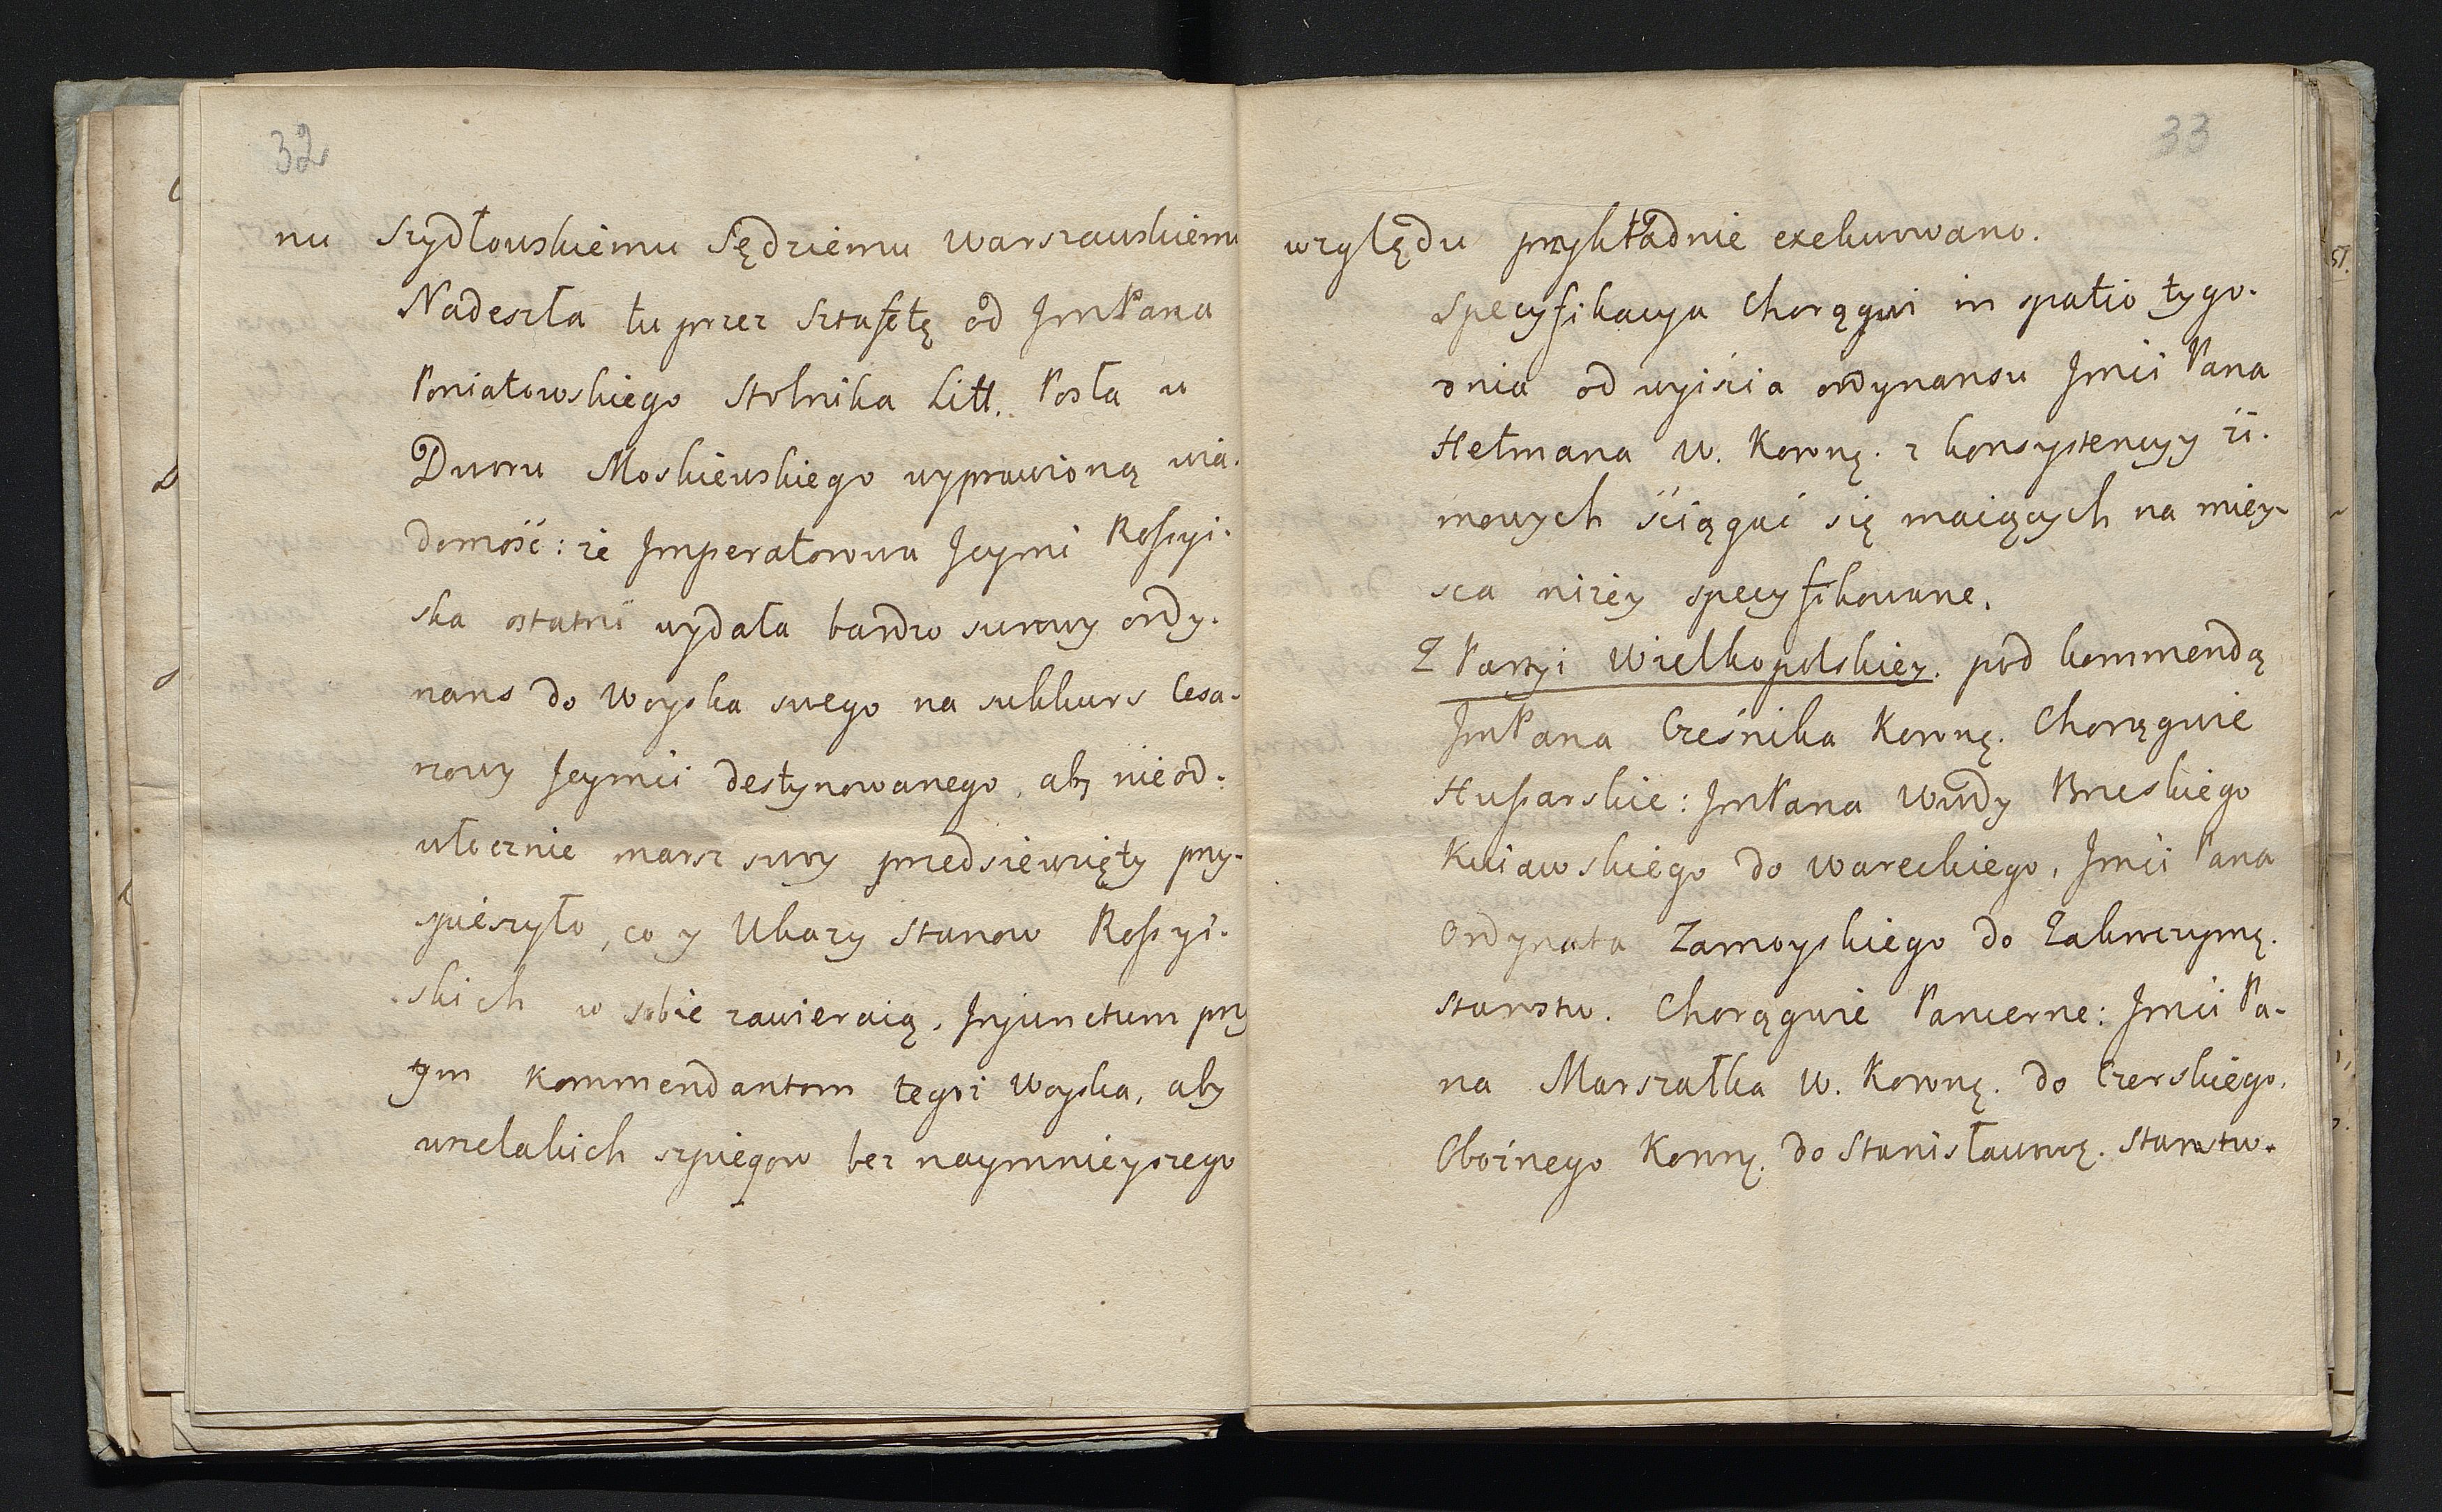 32
nu Szydłowskiemu Sędziemu Warszawskiemu
Nadeszła tu przez Sztafetę od JmPana
Poniatowskiego Stolnika Litt. Posła u
Dworu Moskiewskiego wyprawioną wia-
domość: że Imperatorowa Jeymć Rossyi-
ska ostatni wydała bardzo surowy ordy-
nans do Woyska swego na sukkurs Cesa-
rzowy Jeymci destynowanego, aby nieod-
włocznie marsz swoy przedsięwzięty przy-
spieszyło, co y Ukazy Stanow Rossyi-
skich w sobie zawieraią, Injunctum przy
tym Kommendantom tegoż Woyska, aby
wszelakich szpiegow bez naymnieyszego
33
względu przykładnie exekwowano.
Specyfikacya Chorągwi in spatio tygo-
dnia od wyiścia ordynansu Jmci Pana
Hetmana W. Koronę. z konsystencyy zi-
mowych ściągać się maiących na miey-
sca niżey specyfikowane.
Z Partyi Wielkopolskiey. pod kommendą
JmPana Cześnika Koronę. Chorągwie
Hussarskie: JmPana Wwdy Brzeskiego
Kuiawskiego do Wareckiego, Jmci Pana
Ordynata Zamoyskiego do Zakroczymę.
Starostw. Chorągwie Pancerne: Jmci Pa-
na Marszałka W. Koronę. do Czerskiego,
Oboźnego Koronę. do Stanisławowę. Starostw.